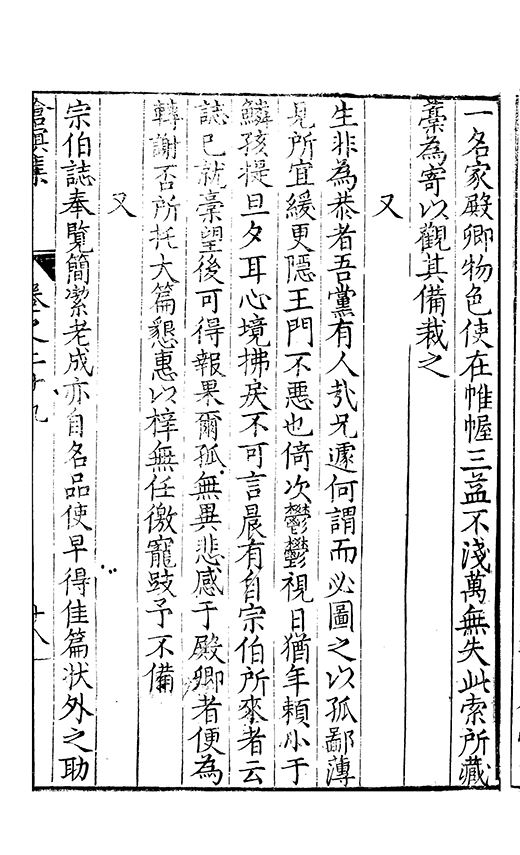 一名家殿卿物色使在帷幄三益不淺萬無失此索所藏
藁為寄以觀其備裁之
又
生非為恭者吾黨有人哉兄遽何謂而必圖之以孤鄙薄
見所宜緩更隱王門不惡也倚次鬱鬱視日猶年頼小于
鱗孩提旦夕耳心境拂戾不可言晨有自宗伯所來者云
誌已就藁望後可得報果爾孤無異悲感于殿卿者便為
轉謝否所托大篇懇惠以梓無任徼寵跂予不備
又
宗伯誌奉覽簡潔老成亦自名品使早得佳篇状外之助
滄溟集
卷之二十九
十八